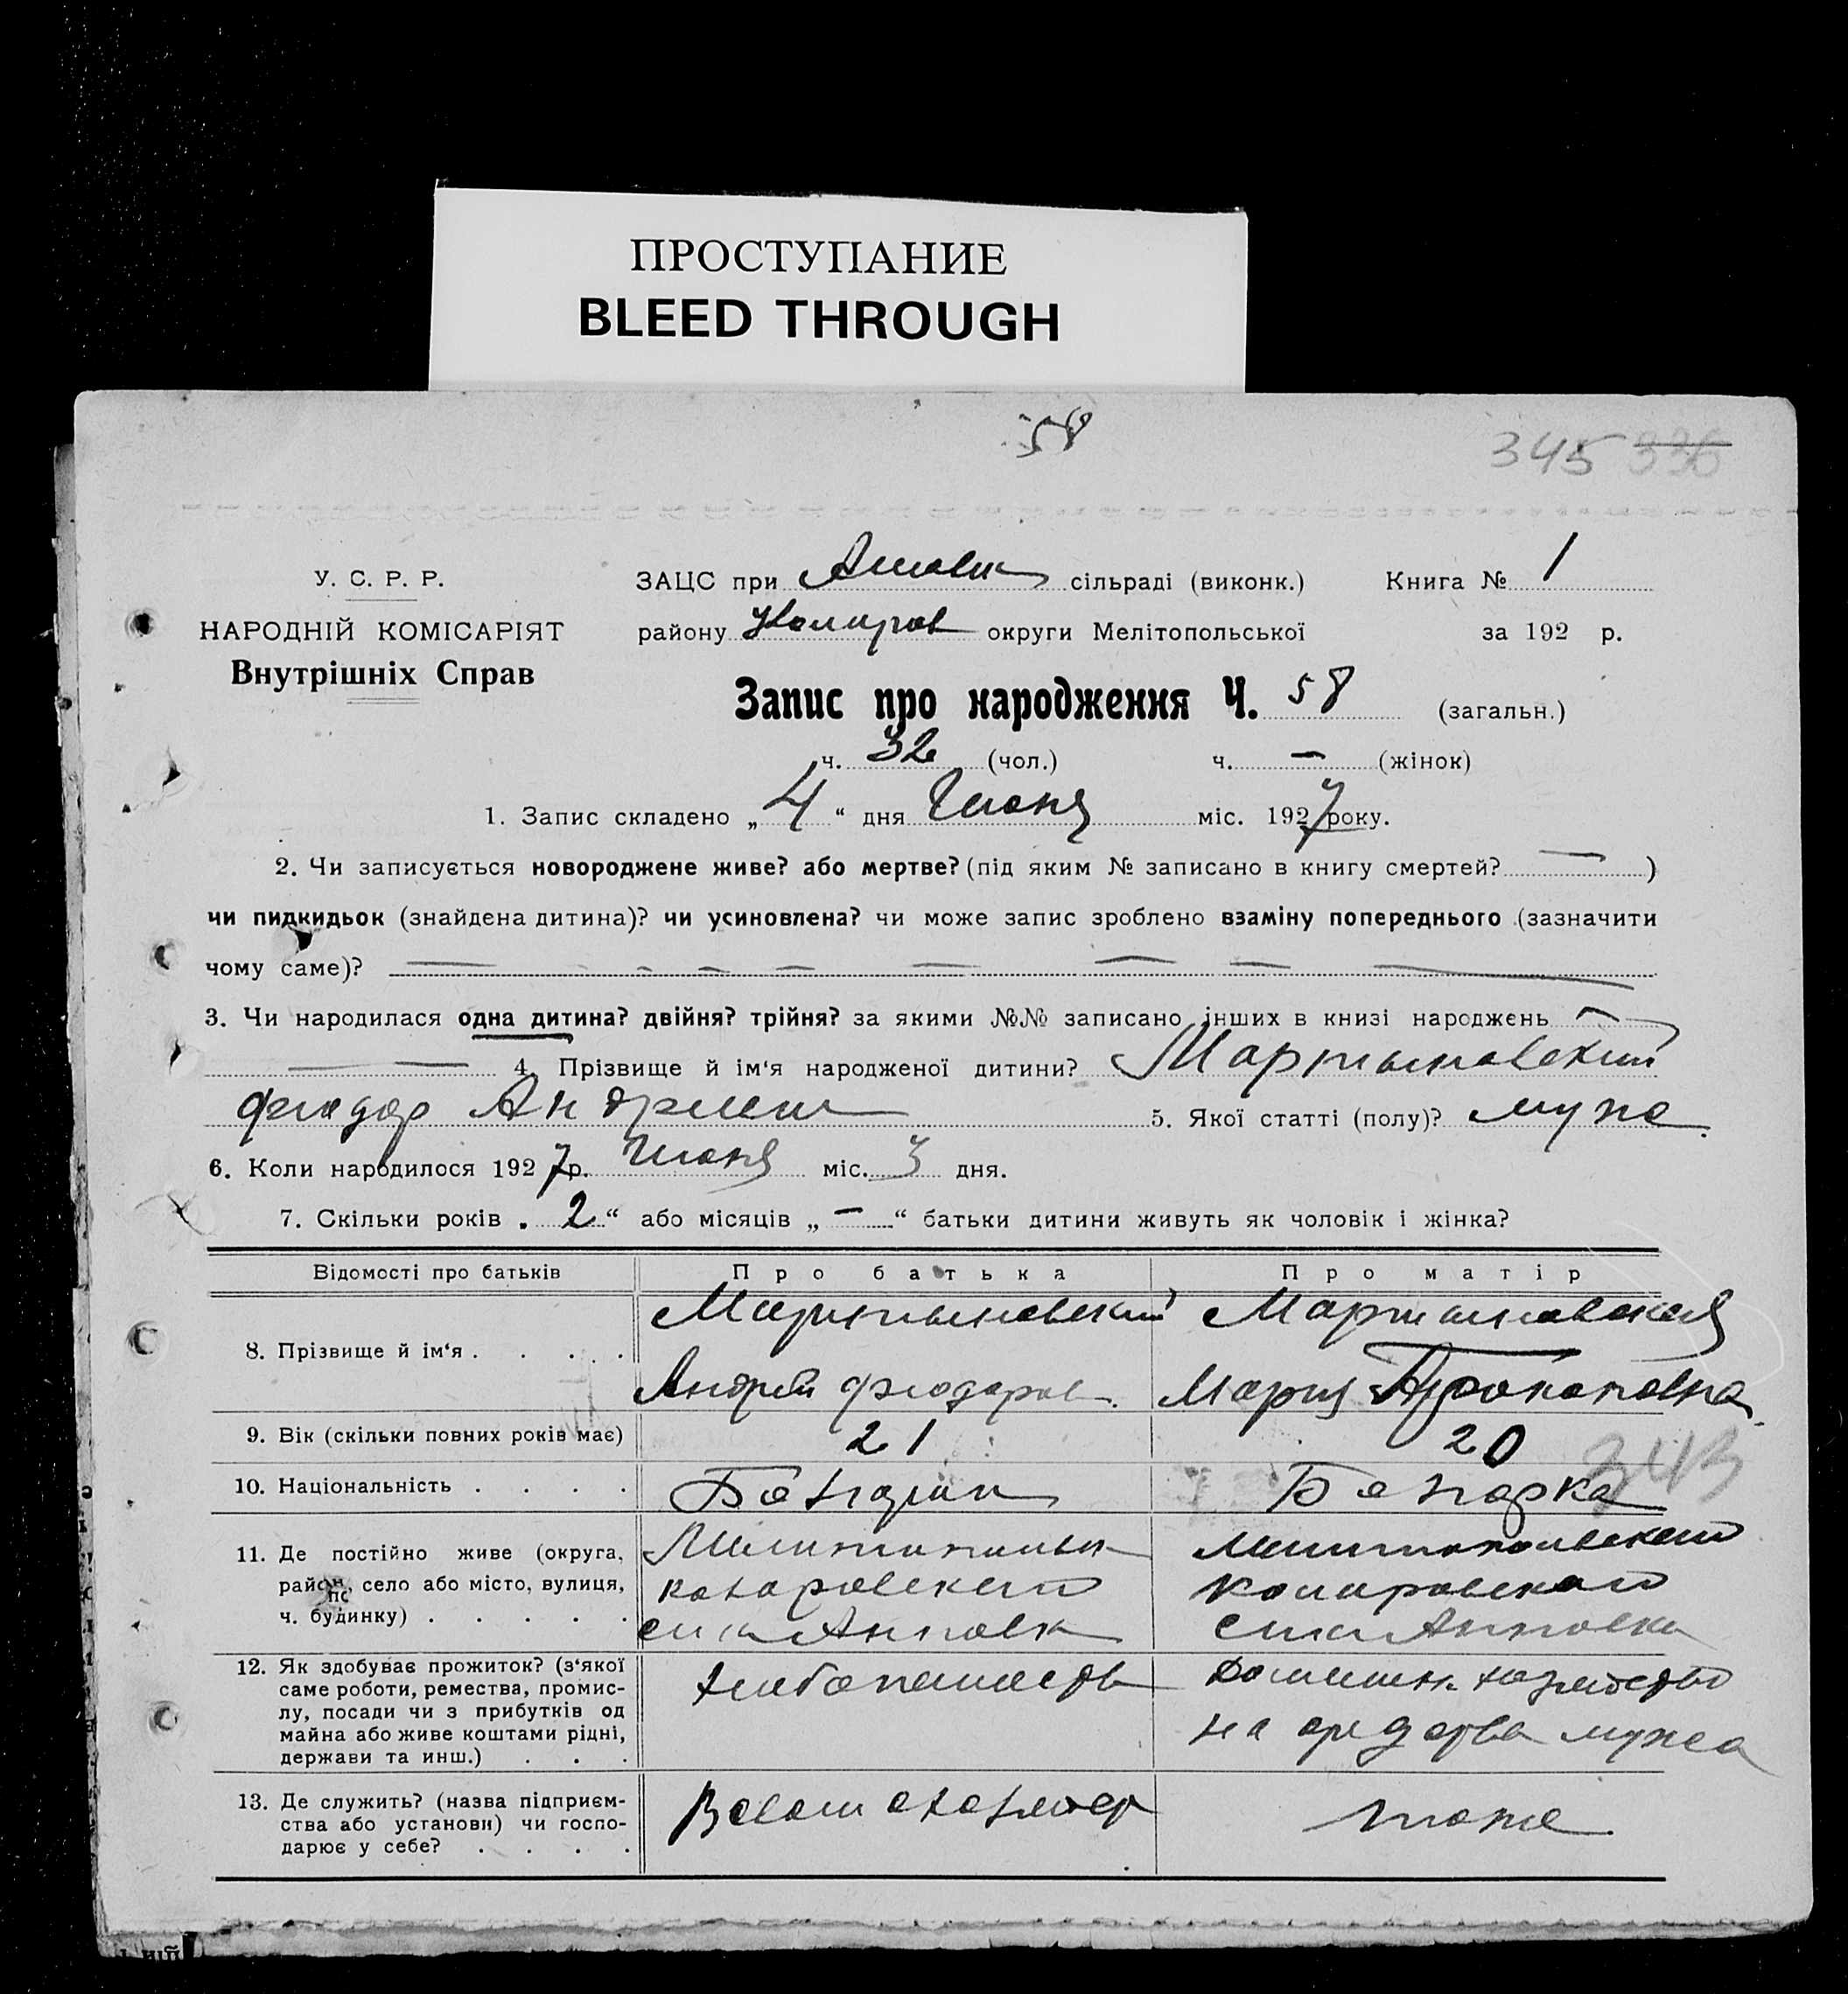 ПРОСТУПАНИЕ
BLEED THROUGH
58
345 336
У. С. Р. Р.
НАРОДНІЙ КОМІСАРІЯТ
Внутрішніх Справ
ЗАЦС при сільраді (виконк.) Книга № 1
району округи Мелітопольської за 192 р.
Запис про народження Ч. 58 (загальн.)
ч. 32 (чол.) ч. — (жінок)
1. Запис складено „ 4 “ дня Июня міс. 1927 року.
2. Чи записується новороджене живе? або мертве? (під яким № записано в книгу смертей? — )
чи пидкидьок (знайдена дитина)? чи усиновлена? чи може запис зроблено взаміну попереднього (зазначити
чому саме)? — — — — — — — —
3. Чи народилася одна дитина? двійня? трійня? за якими №№ записано інших в книзі народжень —
— — 4. Прізвище й ім‘я народженої дитини? Мартыновский
Фиодор Андриеи 5. Якої статті (полу)? муже.
6. Коли народилося 1927 р. Июня міс. 3 дня.
7. Скільки років „ 2 “ або місяців „ — “ батьки дитини живуть як чоловік і жінка?
Відомості про батьків Про батька Про матір
8. Прізвище й ім‘я . . . . . Мартыновский Мартыновская
Андрей Фиодоров. Мария Прокоповна
9. Вік (скільки повних років має) 21 20
343
10. Національність . . . . Болгарин Болгарка
11. Де постійно живе (округа, Мелитопольск Мелитопольского
район, село або місто, вулиця, Комаровского
ч. будинку) . . . . . села Анновка
12. Як здобуває прожиток? (з‘якої хлебопашество домашн. хозяйство
саме роботи, ремества, промис-
лу, посади чи з прибутків од на средства мужа
майна або живе коштами рідні,
держави та инш.) . . .
13. Де служить? (назва підприєм- В своем хозяйстве
ства або установи) чи госпо- тоже
дарює у себе? . . . .